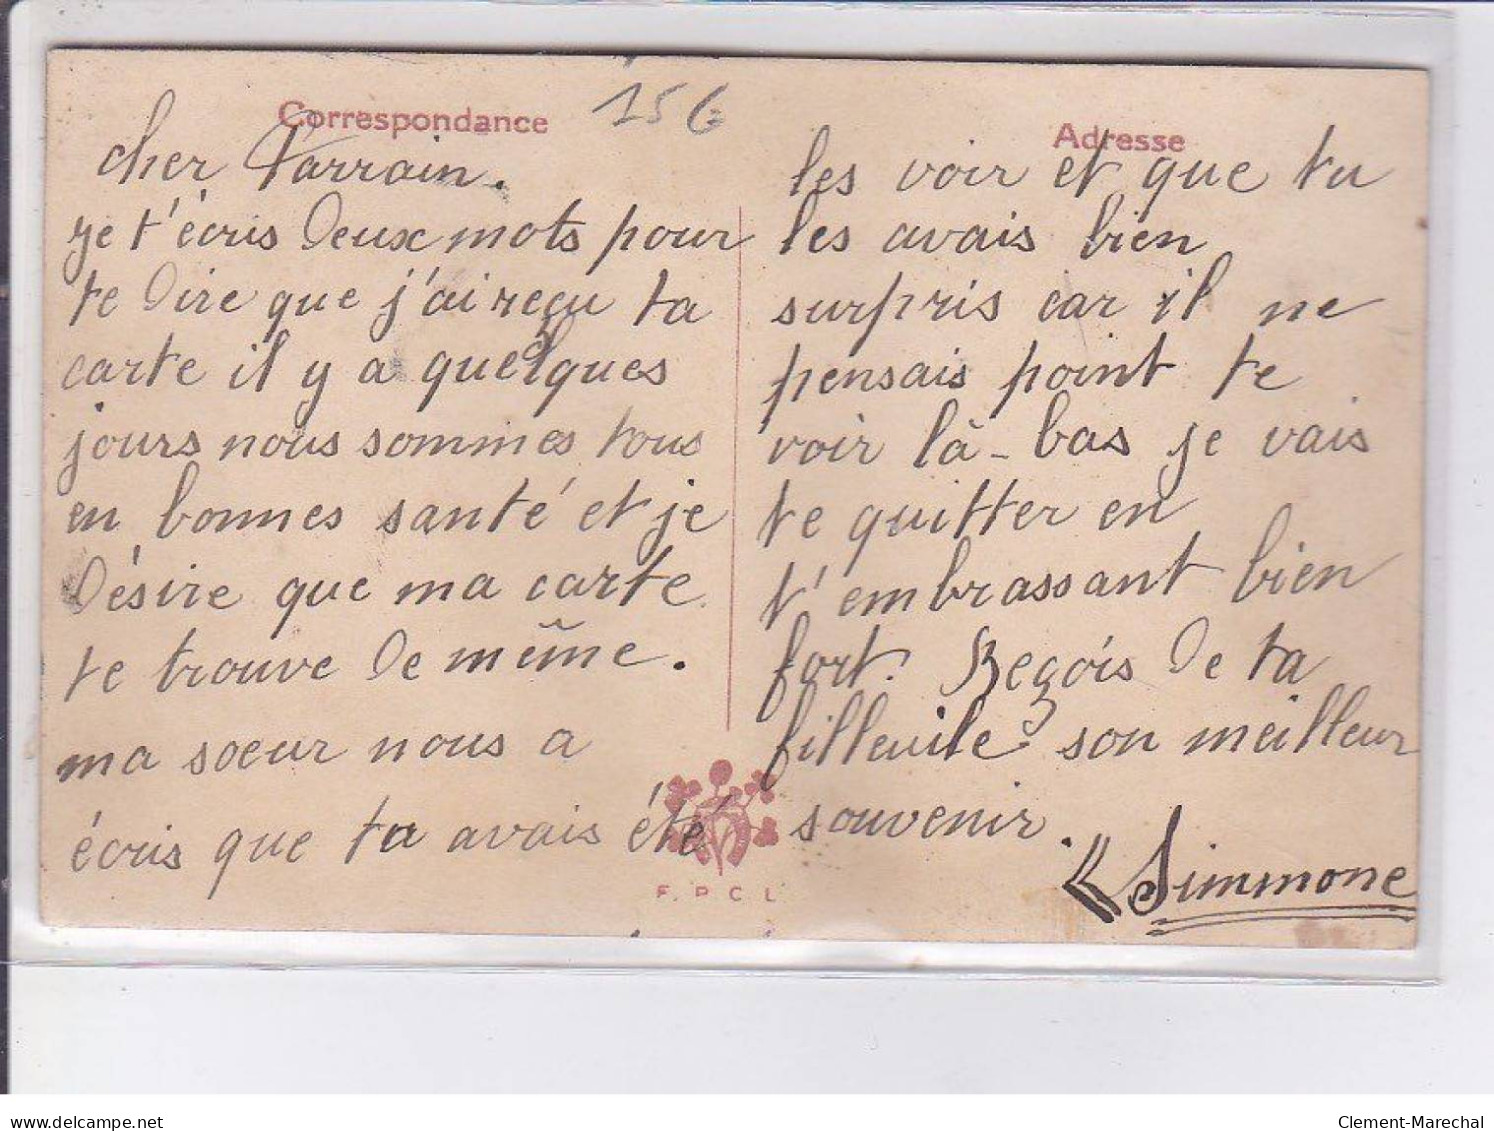 Correspondance
15€
cher Parrain.
je t'écris deux mots pour
te dire que j'ai reçu ta
carte il y a quelques
jours nous sommes tous
en bonnes santé et je
désire que ma carte
te trouve de même.
ma soeur nous a
écris que tu avais été
F. P. C. L
Adresse
les voir et que tu
les avais bien
surpris car il ne
pensais point te
voir là-bas je vais
te quitter en
t'embrassant bien
fort. Reçois de ta
filleuile son meilleur
souvenir.
《Simmone
delcampe.net
Clement-Marechal